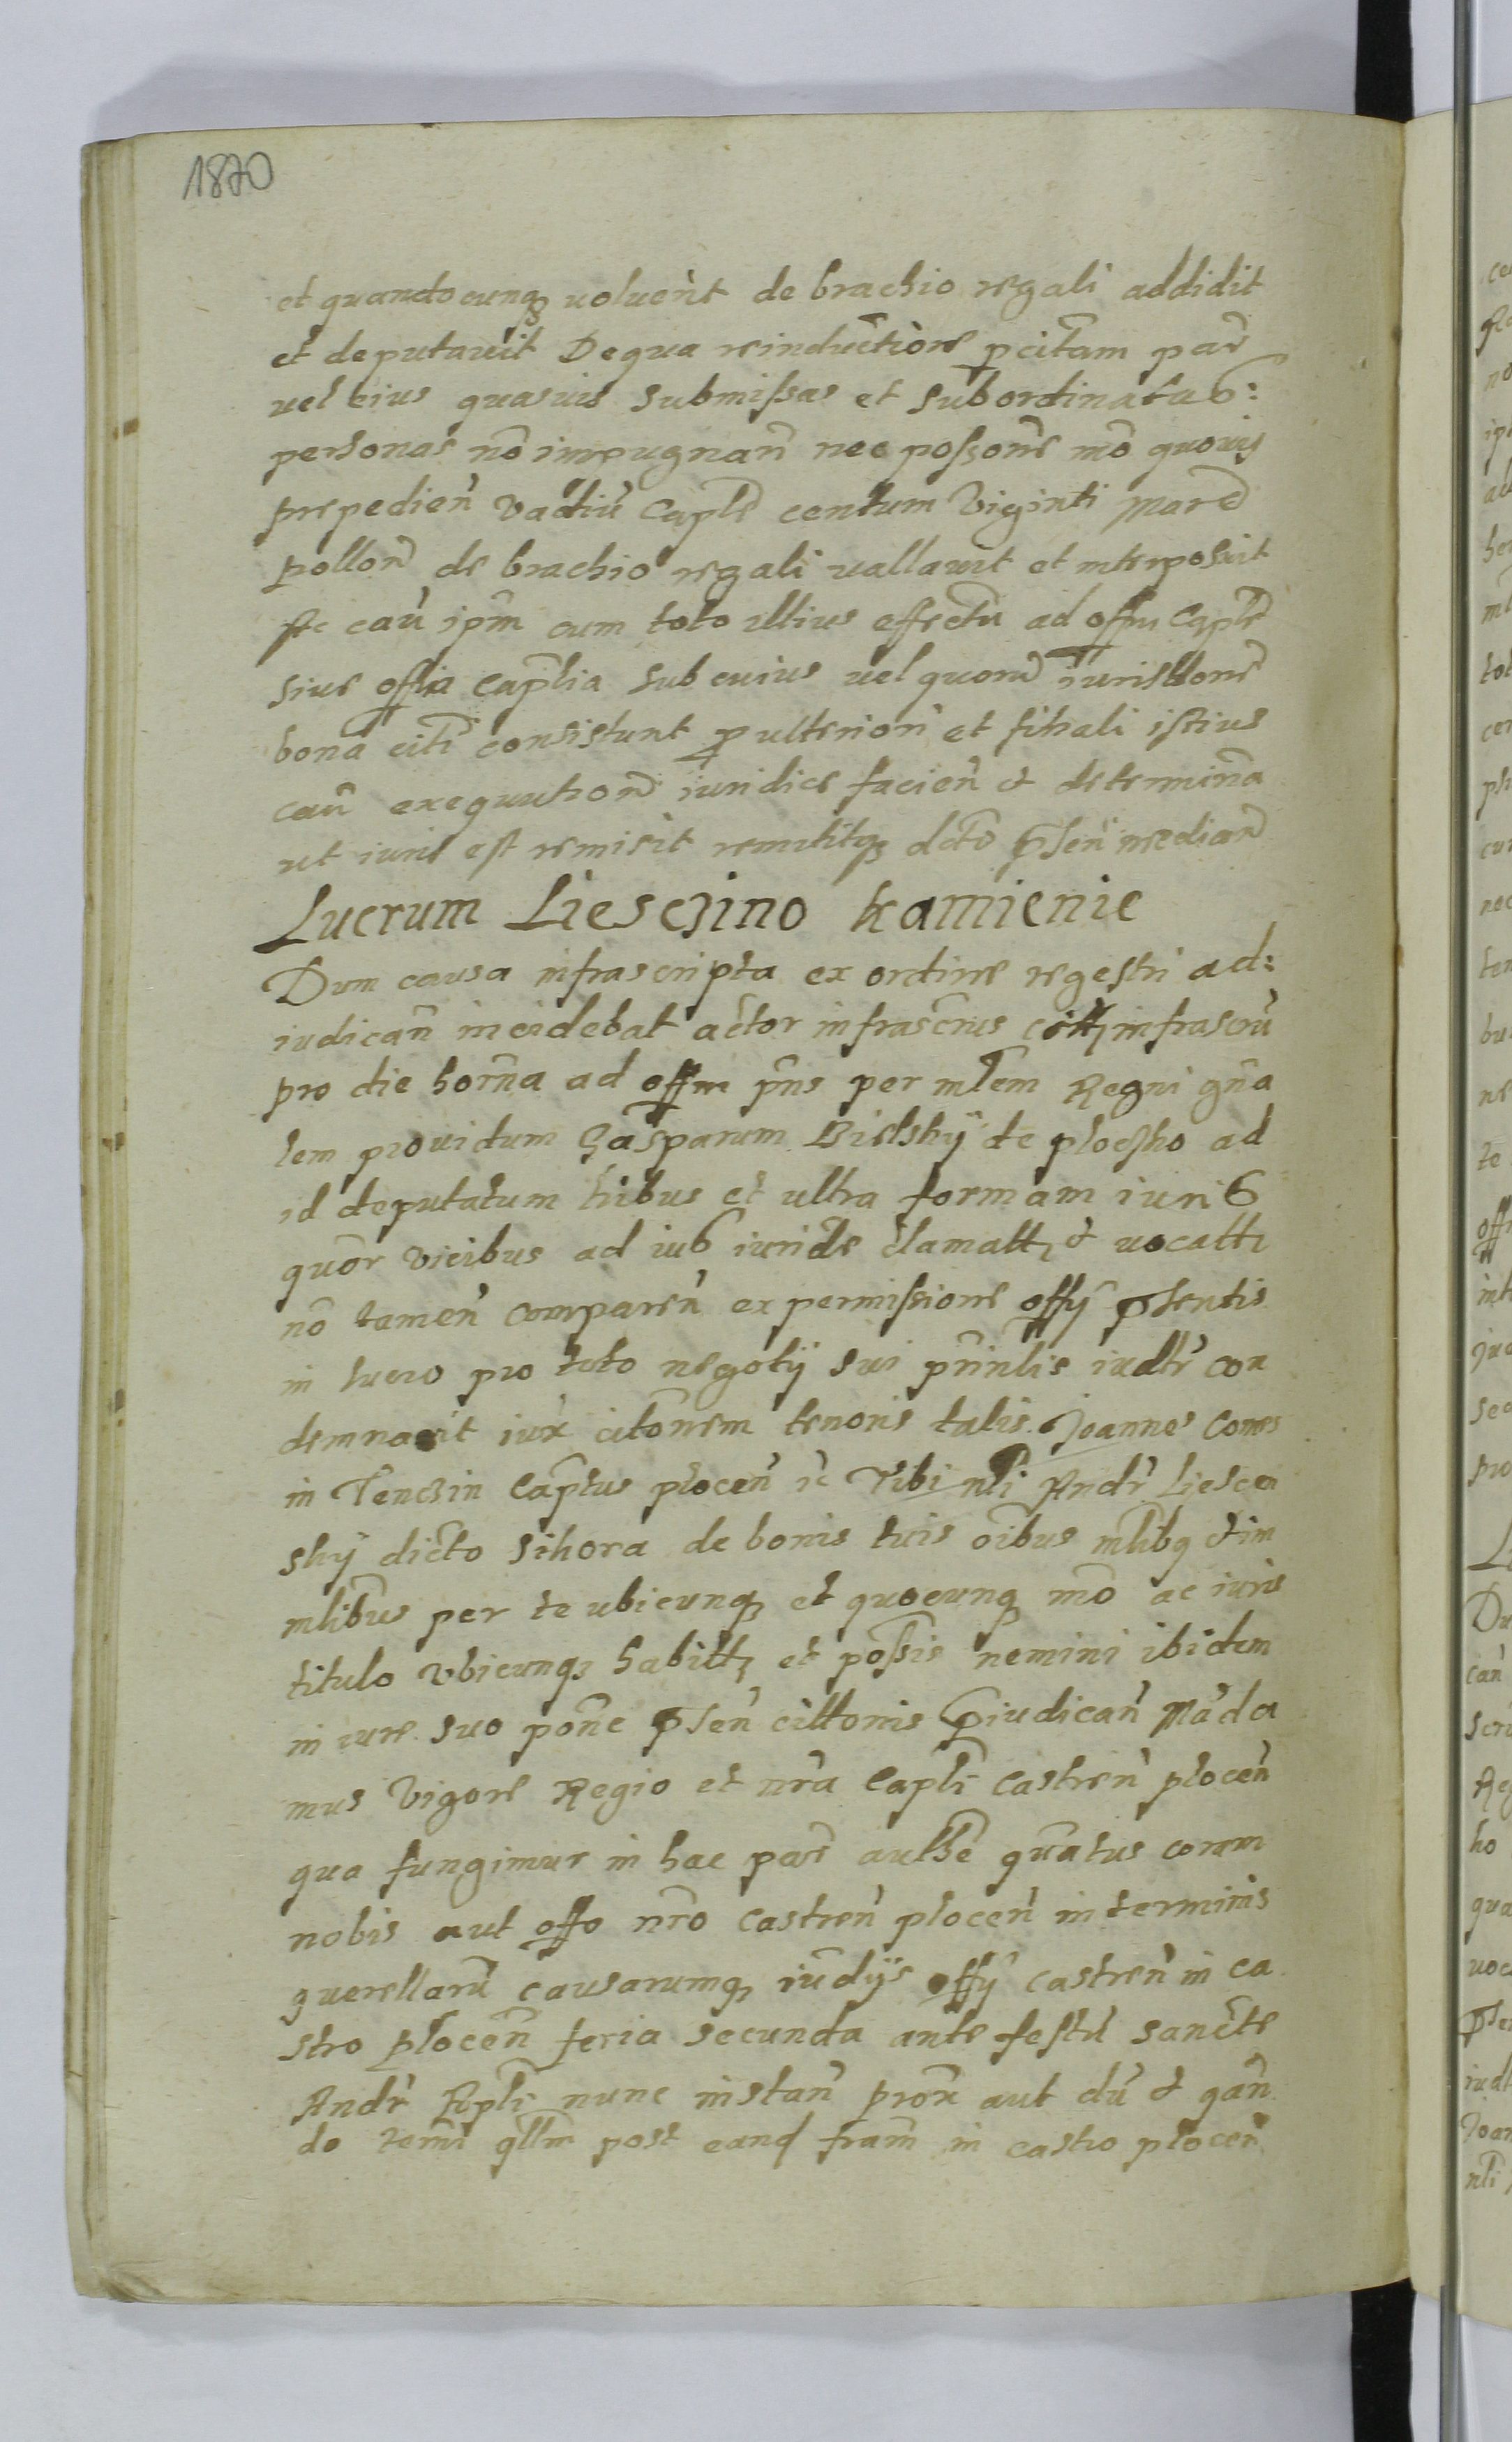 1870
et quandocunq voluerit de brachio regali addidit
et deputavit De qua reinductione pcitam par
vel eius quasvis submissas et subordinatas:
personas nō impugnan nec possone mō quovis
prepedien vadiū Caple centum Viginti Marc
pollon de brachio regali vallavit et interposuit
cau ipm cum toto illius effectu ad offm Caple
sive offia Caplia sub cuius vel quorū iurisdone
bona citi consistunt p ulteriori et finali istius
cau exequutione iuridice facien et determina
ut iuris est remisit remittitq dcto psen median
Lucrum Liesczino Kamienie
Dum causa infrascripta ex ordine regestri ad:
iudican incidebat actor infrascrus citt infrascru
pro die horna ad offm pns per mlem Regni gna
lem providum Gasparum Bielsky de plocsko ad
id deputatum tribus et ultra formam iuris
quor vicibus ad iud iuride clamatt et vocatt
nō tamen comparen ex permissione offy psentis
in lucro pro toto negoty sui prinlis iudlr con
demnavit iux citonem tenoris talis. Joannes Comes
in Tenczin Captus plocen Tibi nli Andr Liescen
sky dicto sikora de bonis tuis oibus mlibq et im
mlibus per te ubicunq et quocunq mō ac iuris
titulo ubicunq habitt et possis nemini ibidem
in iure suo pone psen cittonis piudican Mada
mus vigore Regio et nra Capli castren plocen
qua fungimur in hac par authe quatus coram
nobis aut offo nro castren plocen in terminis
querellarū causarumq iudys offy castren in ca
stro plocen feria secunda ante festū sancte
Andr Apli nunc instan prox aut dū et qan
do termi qllm post eand fram in castro plocen